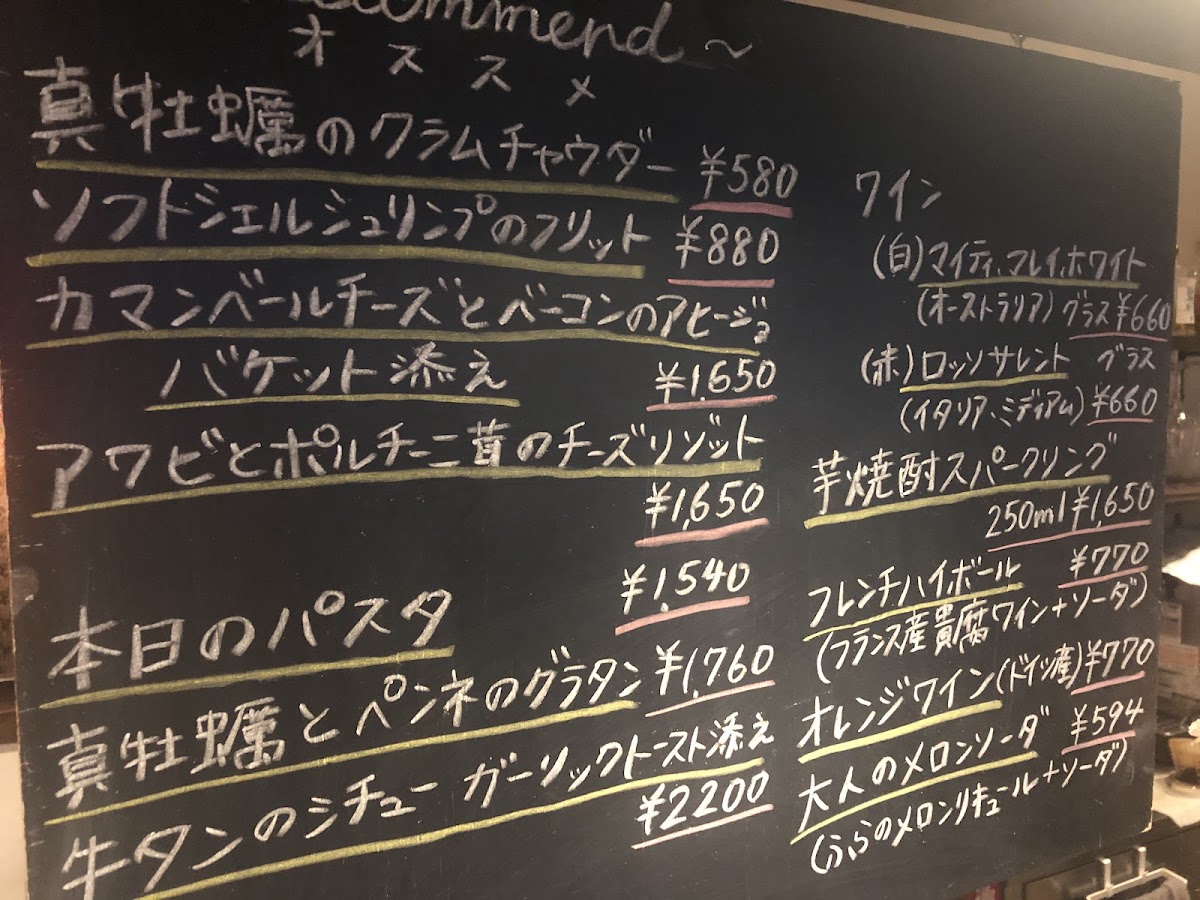 ecommend~
オススメ
真牡蠣のクラムチャウダー ¥580
ソフトシェルシュリンプのフリット ¥880
カマンベールチーズとベーコンのアヒージョ
バケット添え ¥1,650
アワビとポルチーニ茸のチーズリゾット
¥1,650
¥1,540
本日のパスタ
真牡蠣とペンネのグラタン ¥1,760
牛タンのシチュー ガーリックトースト添え
¥2200
ワイン
(白)マイティ、マレイ、ホワイト
(オーストラリア) グラス¥660
(赤)ロッソサレント グラス
(イタリア、ミディアム) ¥660
芋焼酎スパークリング
250ml ¥1,650
フレンチハイボール ¥770
(フランス産貴腐ワイン+ソーダ)
オレンジワイン(ドイツ産)¥770
大人のメロンソーダ ¥594
(ふらのメロンリキュール+ソーダ)